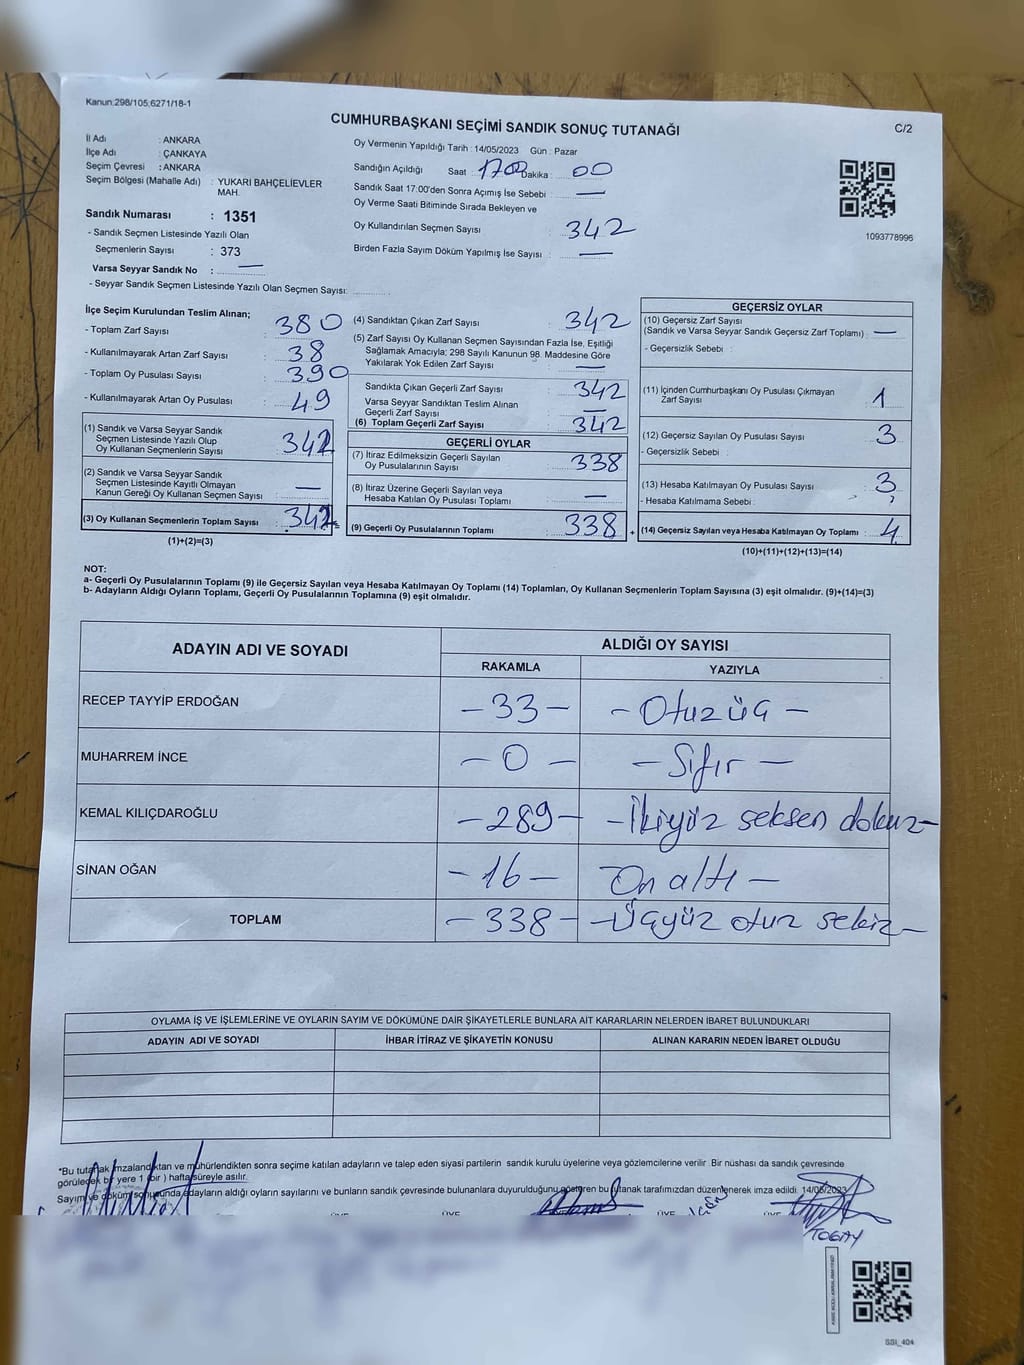 Kanun;298/105;6271/18-1
CUMHURBAŞKANI SEÇİMİ SANDIK SONUÇ TUTANAĞI
C/2
İl Adı : ANKARA
İlçe Adı : ÇANKAYA
Seçim Çevresi : ANKARA
Seçim Bölgesi (Mahalle Adı) : YUKARI BAHÇELİEVLER
MAH.
Sandık Numarası : 1351
- Sandık Seçmen Listesinde Yazılı Olan
Seçmenlerin Sayısı : 373
Varsa Seyyar Sandık No : —
- Seyyar Sandık Seçmen Listesinde Yazılı Olan Seçmen Sayısı:
Oy Vermenin Yapıldığı Tarih : 14/05/2023 Gün : Pazar
Sandığın Açıldığı Saat : 1700 Dakika : 00
Sandık Saat 17:00'den Sonra Açımış İse Sebebi : —
Oy Verme Saati Bitiminde Sırada Bekleyen ve
Oy Kullandırılan Seçmen Sayısı : 342
Birden Fazla Sayım Döküm Yapılmış İse Sayısı : —
1093778996
İlçe Seçim Kurulundan Teslim Alınan;
- Toplam Zarf Sayısı : 380
- Kullanılmayarak Artan Zarf Sayısı : 38
- Toplam Oy Pusulası Sayısı : 390
- Kullanılmayarak Artan Oy Pusulası : 49
(1) Sandık ve Varsa Seyyar Sandık
Seçmen Listesinde Yazılı Olup
Oy Kullanan Seçmenlerin Sayısı : 342
(2) Sandık ve Varsa Seyyar Sandık
Seçmen Listesinde Kayıtlı Olmayan
Kanun Gereği Oy Kullanan Seçmen Sayısı : —
(3) Oy Kullanan Seçmenlerin Toplam Sayısı : 342
(1)+(2)=(3)
(4) Sandıktan Çıkan Zarf Sayısı : 342
(5) Zarf Sayısı Oy Kullanan Seçmen Sayısından Fazla İse, Eşitliği
Sağlamak Amacıyla; 298 Sayılı Kanunun 98. Maddesine Göre
Yakılarak Yok Edilen Zarf Sayısı : —
Sandıkta Çıkan Geçerli Zarf Sayısı : 342
Varsa Seyyar Sandıktan Teslim Alınan
Geçerli Zarf Sayısı : —
(6) Toplam Geçerli Zarf Sayısı : 342
GEÇERLİ OYLAR
(7) İtiraz Edilmeksizin Geçerli Sayılan
Oy Pusulalarının Sayısı : 338
(8) İtiraz Üzerine Geçerli Sayılan veya
Hesaba Katılan Oy Pusulası Toplamı : —
= (9) Geçerli Oy Pusulalarının Toplamı : 338
GEÇERSİZ OYLAR
(10) Geçersiz Zarf Sayısı
(Sandık ve Varsa Seyyar Sandık Geçersiz Zarf Toplamı) : —
- Geçersizlik Sebebi :
(11) İçinden Cumhurbaşkanı Oy Pusulası Çıkmayan
Zarf Sayısı : 1
(12) Geçersiz Sayılan Oy Pusulası Sayısı : 3
- Geçersizlik Sebebi :
(13) Hesaba Katılmayan Oy Pusulası Sayısı : 3
- Hesaba Katılmama Sebebi :
+ (14) Geçersiz Sayılan veya Hesaba Katılmayan Oy Toplamı : 4
(10)+(11)+(12)+(13)=(14)
NOT:
a- Geçerli Oy Pusulalarının Toplamı (9) ile Geçersiz Sayılan veya Hesaba Katılmayan Oy Toplamı (14) Toplamları, Oy Kullanan Seçmenlerin Toplam Sayısına (3) eşit olmalıdır. (9)+(14)=(3)
b- Adayların Aldığı Oyların Toplamı, Geçerli Oy Pusulalarının Toplamına (9) eşit olmalıdır.
ADAYIN ADI VE SOYADI
ALDIĞI OY SAYISI
RAKAMLA YAZIYLA
RECEP TAYYİP ERDOĞAN – 33 – – Otuzüç –
MUHARREM İNCE – 0 – – Sıfır –
KEMAL KILIÇDAROĞLU – 289 – – İkiyüz seksen dokuz –
SİNAN OĞAN – 16 – On altı –
TOPLAM – 338 – – Üçyüz otuz sekiz –
OYLAMA İŞ VE İŞLEMLERİNE VE OYLARIN SAYIM VE DÖKÜMÜNE DAİR ŞİKAYETLERLE BUNLARA AİT KARARLARIN NELERDEN İBARET BULUNDUKLARI
ADAYIN ADI VE SOYADI İHBAR İTİRAZ VE ŞİKAYETİN KONUSU ALINAN KARARIN NEDEN İBARET OLDUĞU
*Bu tutanak imzalandıktan ve mühürlendikten sonra seçime katılan adayların ve talep eden siyasi partilerin sandık kurulu üyelerine veya gözlemcilerine verilir. Bir nüshası da sandık çevresinde
görülecek bir yere 1 (bir) hafta süreyle asılır.
Sayım ve döküm sonucunda adayların aldığı oyların sayılarını ve bunların sandık çevresinde bulunanlara duyurulduğunu gösteren bu tutanak tarafımızdan düzenlenerek imza edildi. 14/05/2023
ÜYE ÜYE ÜYE
TOGAY
SSI_404